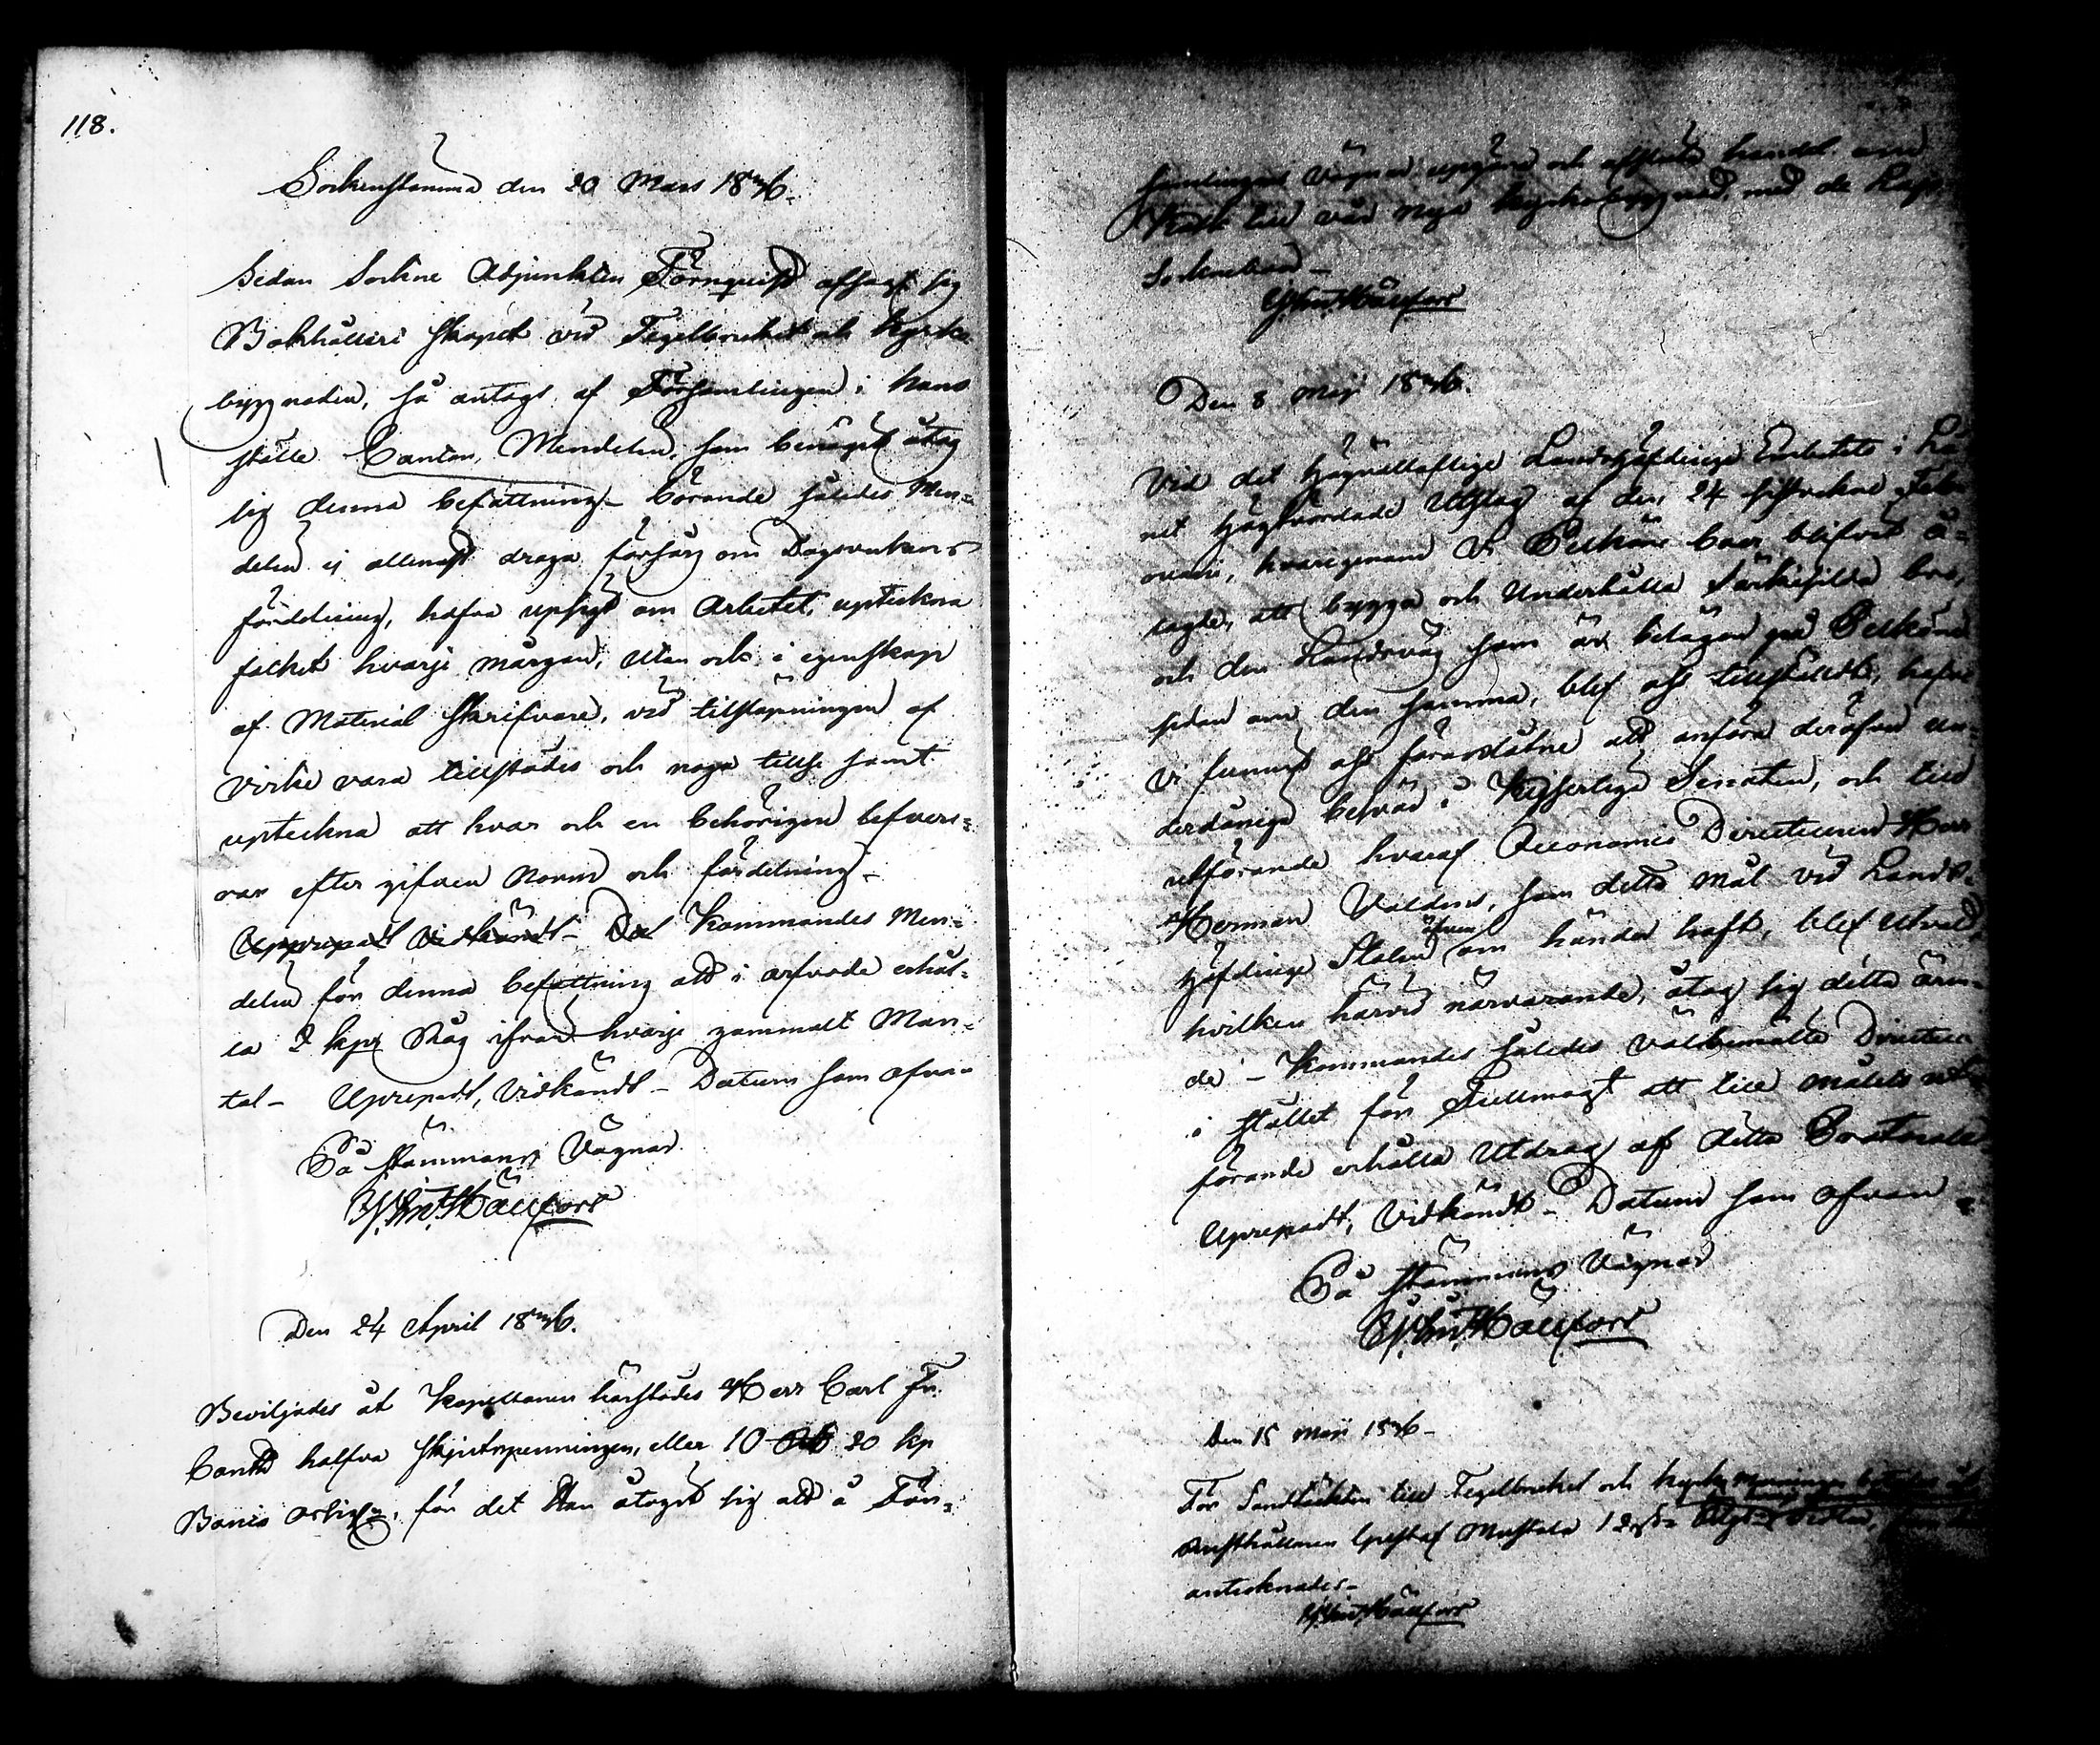 118.
Sockenstämma den 20 Mars 1836.
Sedan Sockne Adjunkten Törnqvist afsagt sig
Bokhålleri skapet vid Tegelbruket och kyrko
byggnaden, så antogs af Församlingen i hans
ställe Cantor Mendelin, som benäget åtog
sig denna befattning – börande således Men=
delin ej allenast draga försorg om Dagsverkens
fördelning, hafva upsigt om Arbetet, upteckna
folket hvarje morgon, utan och i egenskap
af Material Skrifvare, vid tillstäpningen af
Virke vara tillstädes och noga tillse samt
upteckna att hvar och en behörigen lefvere=
rar efter gifven Norm och fördelning –
Upprepadt Vidkändt – Det Kommandes Men=
delin för denna befattning att i arfvode erhål=
la 2 kpr Råg ifrån hvarje gammalt Man=
tal – Uprepadt, Vidkändt – Datum som ofvan
På Stämmans Vägnar
Hällfors
Den 24 April 1836.
Beviljades åt Kapellanen härstädes Herr Carl Fr.
halfva Skjutspenningen, eller 10 20 kp
Banco Assign:, för det Han åtagit sig att å För=
samlingens Vägnar upgöra och afsluta handel om
Kalk till vår nya kyrkobyggnad, med de
Socknebor –
Hällfors
Den 8 Maji 1836.
Vid det Högvälloflige Landshöfdinge Embetets i Lä
net Högtvördade Utslag af den 24 sistvekne Febr
ovarii, hvarigenom Vi Pelkäne boer blifvit å=
lagde, att bygga och Underhålla Särkisilda bro,
och den Landsväg som är belägen på Pelkäne
sidan om den samma, blef oss tillställdt, hafva
Vi funnit oss föranlåtne att anföra deröfver un=
derdånige besvär i Kejserliga Senaten, och till
utförande hvaraf Oeconomie Directeuren Herr
Herman Valdens, som detta mål vid Lands=
höfdinge Stolen äfven om händer haft, blef utvald,
hvilken härvid närvarande, åtog sig detta ären=
de – Kommandes således välbemälte Directeur
i stället för Fullmagt att till målets ut
förande erhålla Utdrag af detta Protocoll.
Uprepadt, Vidkändt – Datum som ofvan
På Stämmans Vägnar
Hällfors
Den 15 Maji 1836 –
För Sandtäckten till Tegelbruket och
Rusthållaren Gustaf Mustala 12
antecknades –
Hällfors